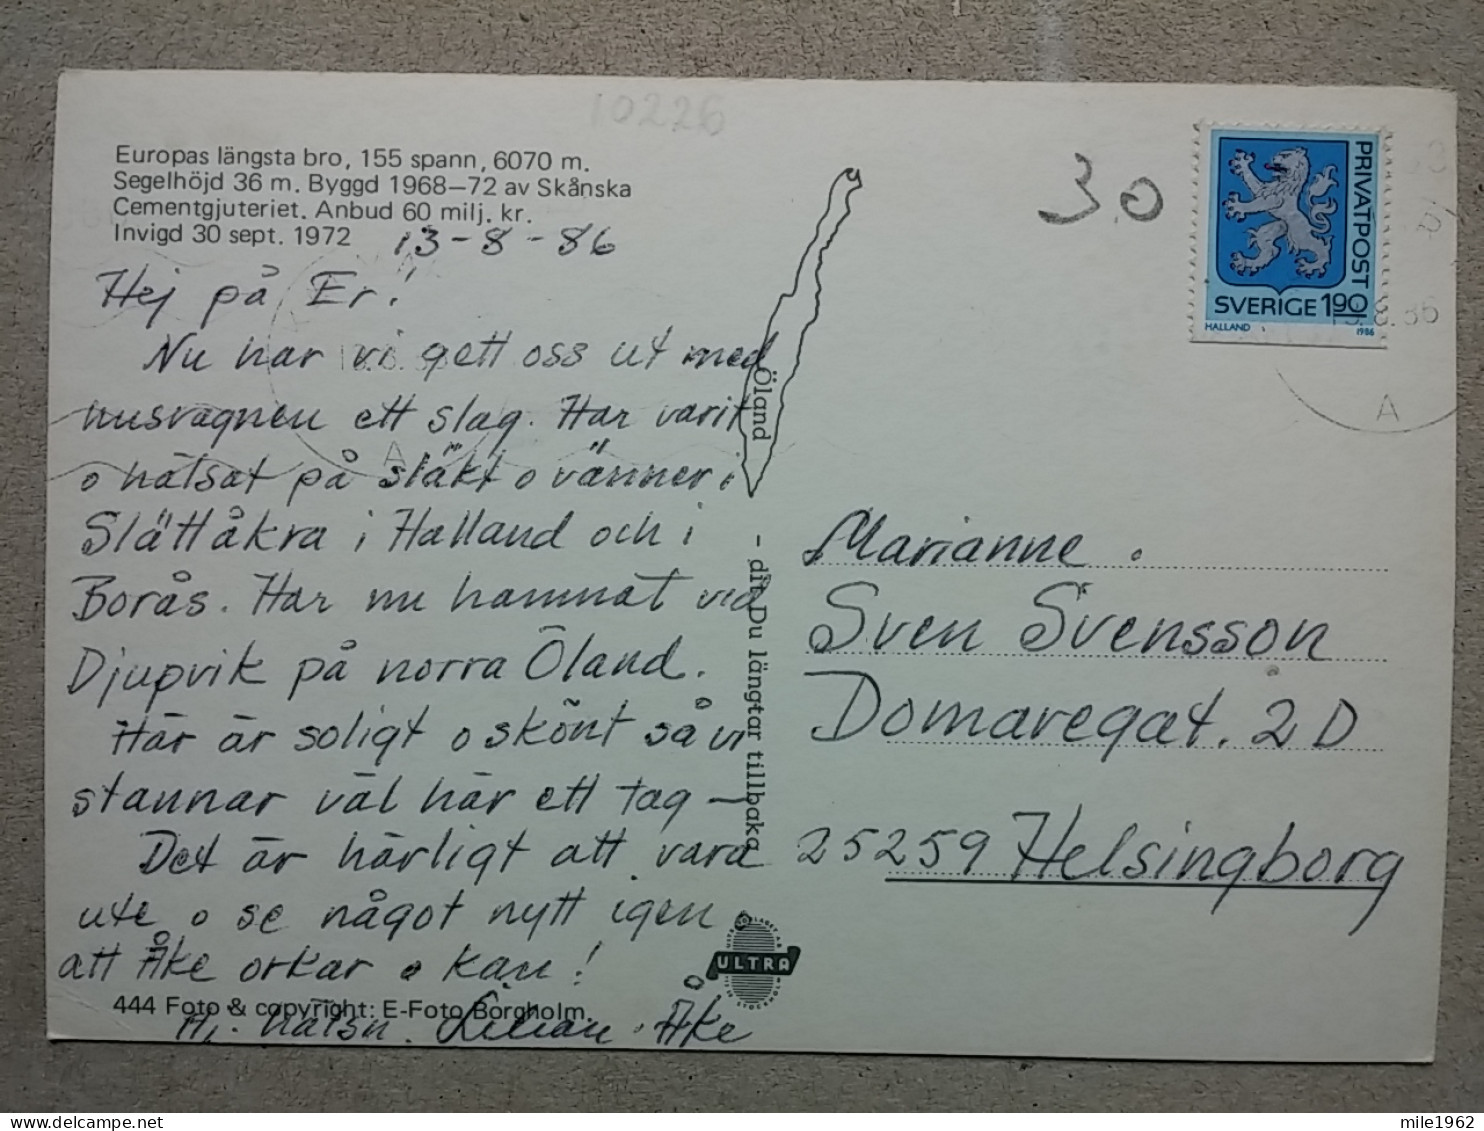 10226
Europas längsta bro, 155 spann, 6070 m.
Segelhöjd 36 m. Byggd 1968–72 av Skånska
Cementgjuteriet. Anbud 60 milj. kr.
Invigd 30 sept. 1972
13-8-86
Hej på Er!
Nu har vi gett oss ut med
husvagnen ett slag. Har varit
o hälsat på släkt o vänner i
Slättåkra i Halland och i
Borås. Har nu hamnat vid
Djupvik på norra Öland.
Här är soligt o skönt så vi
stannar väl här ett tag –
Det är härligt att vara
ute o se något nytt igen o
att Åke orkar o kan!
Hj. hälsn. Lilian o Åke
444 Foto & copyright: E-Foto Borgholm.
Öland
- dit Du längtar tillbaka
ULTRA
3.0
PRIVATPOST
SVERIGE 190
HALLAND 1986
13.8.86
A
A
Marianne o
Sven Svensson
Domaregat. 2D
25259 Helsingborg
mile1962